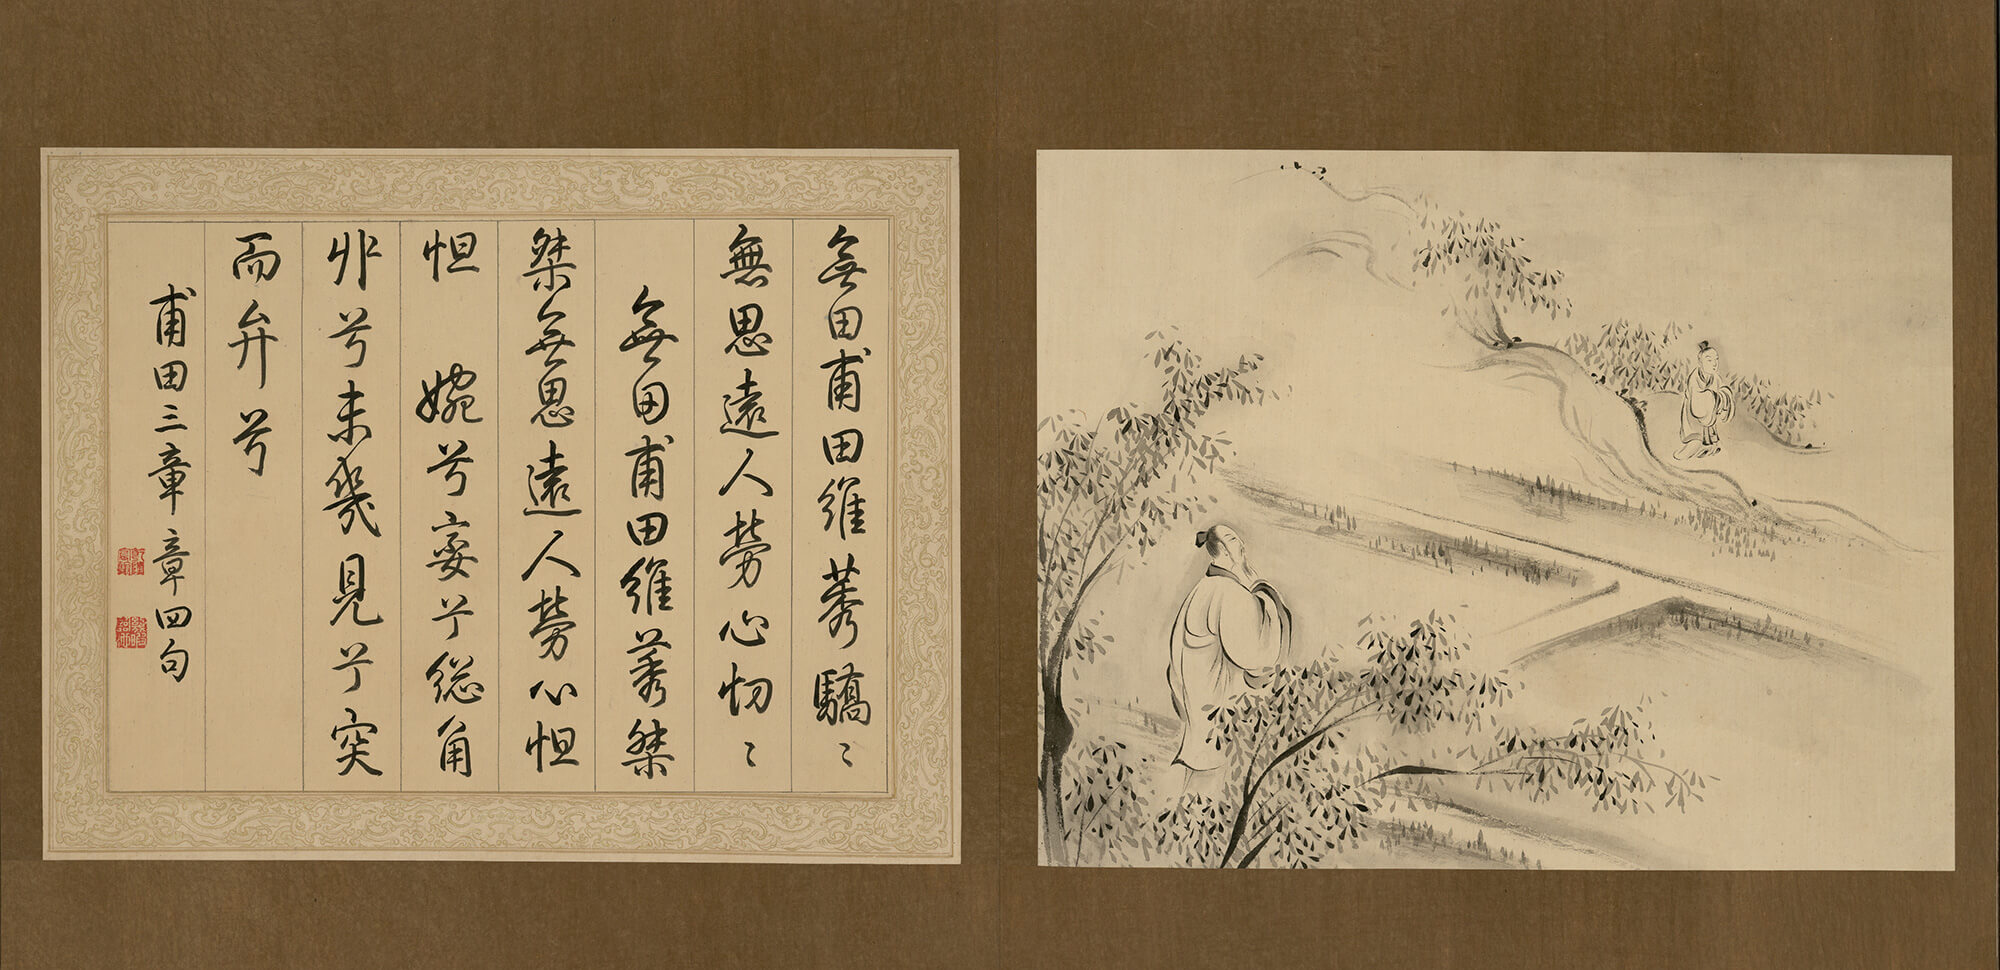 無田甫田維莠驕〻
無思遠人勞心忉〻
無田甫田維莠桀
桀無思遠人勞心怛
怛 婉兮孌兮総角
丱兮未幾見兮突
而弁兮
甫田三章章四句